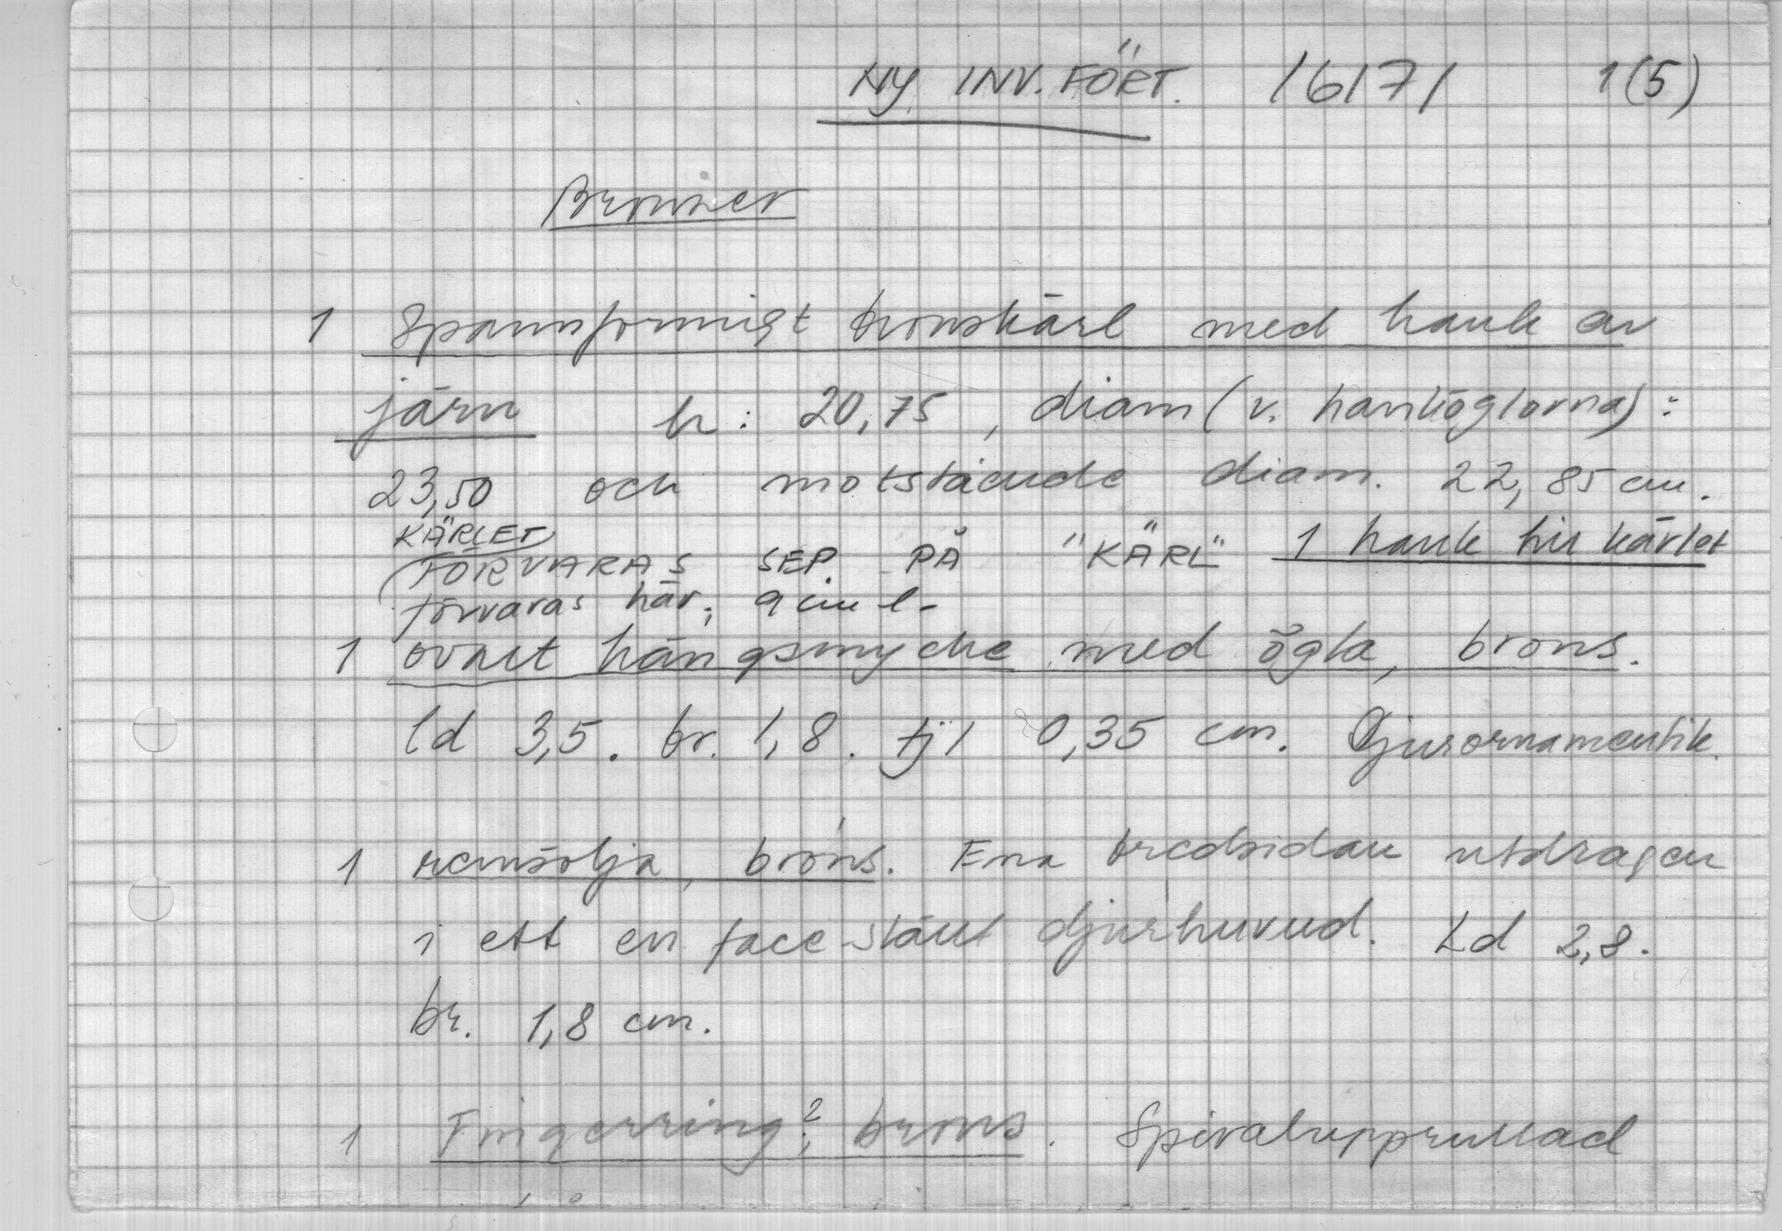 NY INV. FÖRT. 16171 1(5)
Bronser
1 Spannformigt bronskärl med hank av
järn h: 20,75, diam (v. hanköglorna):
23,50 och motstående diam. 22,85 cm.
KÄRLET
FÖRVARAS SEP. PÅ "KÄRL" 1 hank till kärlet
förvaras här; 9 cm l.
1 ovalt hängsmycke med ögla, brons.
ld 3,5. br. 1,8. tjl 0,35 cm. Djurornamentik.
1 remsölja, brons. Ena bredsidan utdragen
i ett en face ställt djurhuvud. Ld 2,8.
br. 1,8 cm.
1 Fingerring?, brons. Spiralupprullad